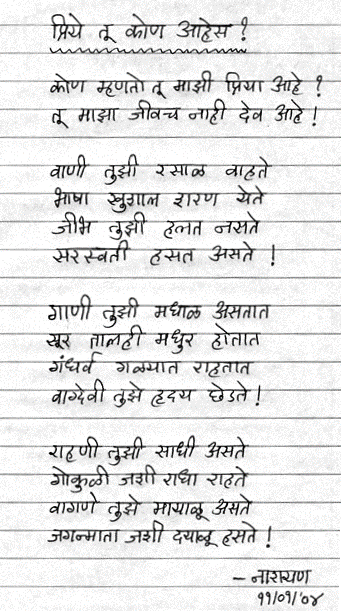 प्रिये तू कोण आहेस ?
कोण म्हणतो तू माझी प्रिया आहे ?
तू माझा जीवच नाही देव आहे !
वाणी तुझी रसाळ वाहते
भाषा खुशाल शरण येते
जीभ तुझी हलत नसते
सरस्वती हसत असते !
गाणी तुझी मधाळ असतात
सूर तालही मधुर होतात
गंधर्व गळ्यात राहतात
वाग्देवी तुझे हृदय छेडते !
राहणी तुझी साधी असते
गोकुळी जशी राधा राहते
वागणे तुझे मायाळू असते
जगन्माता जशी दयाळू हसते !
– नारायण
११/०१/'०४